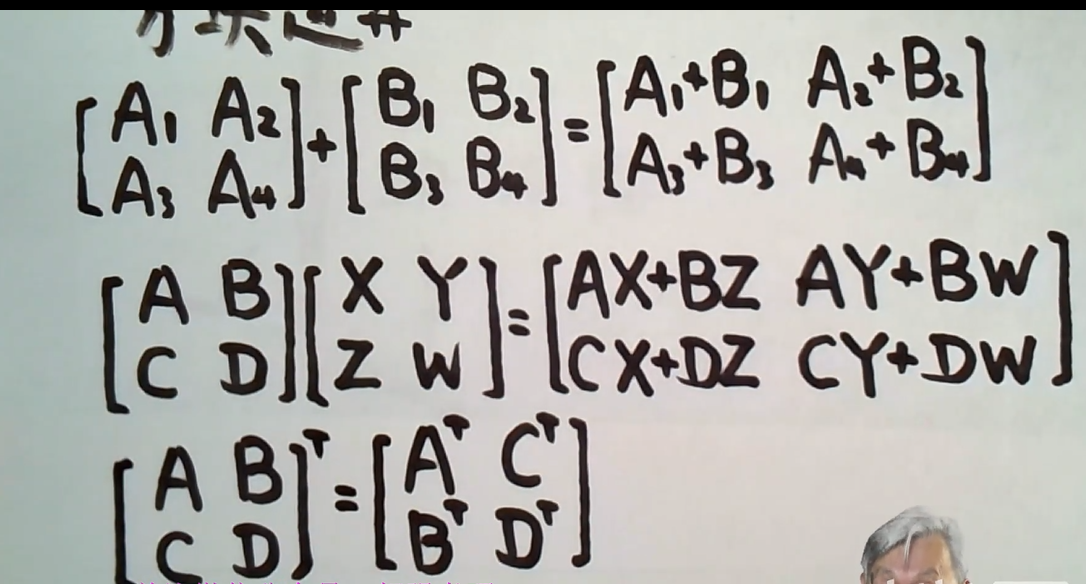 [A₁ A₂; A₃ A₄] + [B₁ B₂; B₃ B₄] = [A₁+B₁ A₂+B₂; A₃+B₃ A₄+B₄]
[A B; C D][X Y; Z W] = [AX+BZ AY+BW; CX+DZ CY+DW]
[A B; C D]ᵀ = [Aᵀ Cᵀ; Bᵀ Dᵀ]